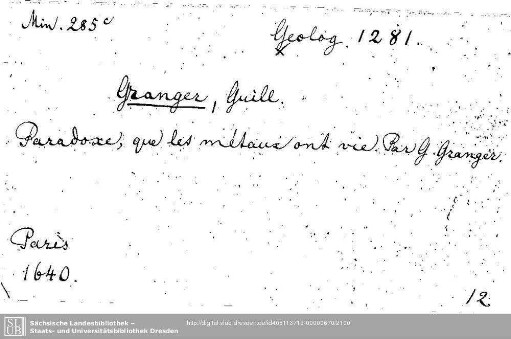 Min. 285 c
Geolog. 1281.
x
Granger, Guill.
Paradoxe, que les métaux ont vie. Par G. Granger.
Paris
1640.
12.
SLUB
Sächsische Landesbibliothek –
Staats- und Universitätsbibliothek Dresden